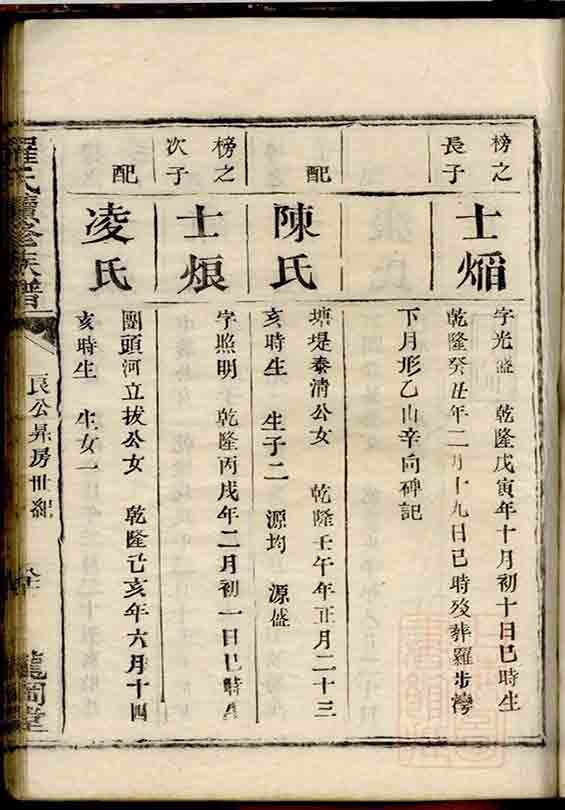 榜之
長子
士煏
字光盛 乾隆戊寅年十月初十日巳時生
乾隆癸丑年二月十九日巳時歿葬羅步灣
下月形乙山辛向碑記
配
陳氏
塘堤泰清公女 乾隆壬午年正月二十三
亥時生 生子二 源均 源盛
榜之
次子
士烺
字照明 乾隆丙戌年二月初一日巳時生
配
凌氏
團頭河立拔公女 乾隆己亥年六月十四
亥時生 生女一
羅氏續修族譜
良公昇房世紀